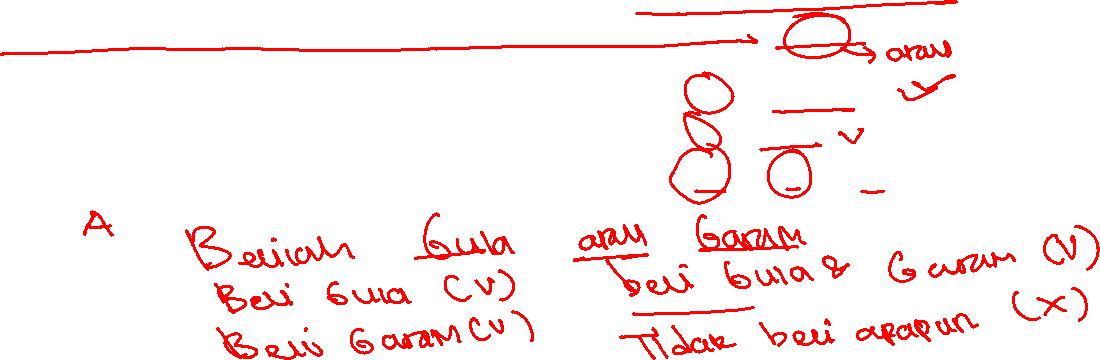 atau
A
Belilah Gula atau Garam
Beli Gula (V)
beli Gula & Garam (V)
Beli Garam (V)
Tidak beli apapun (X)